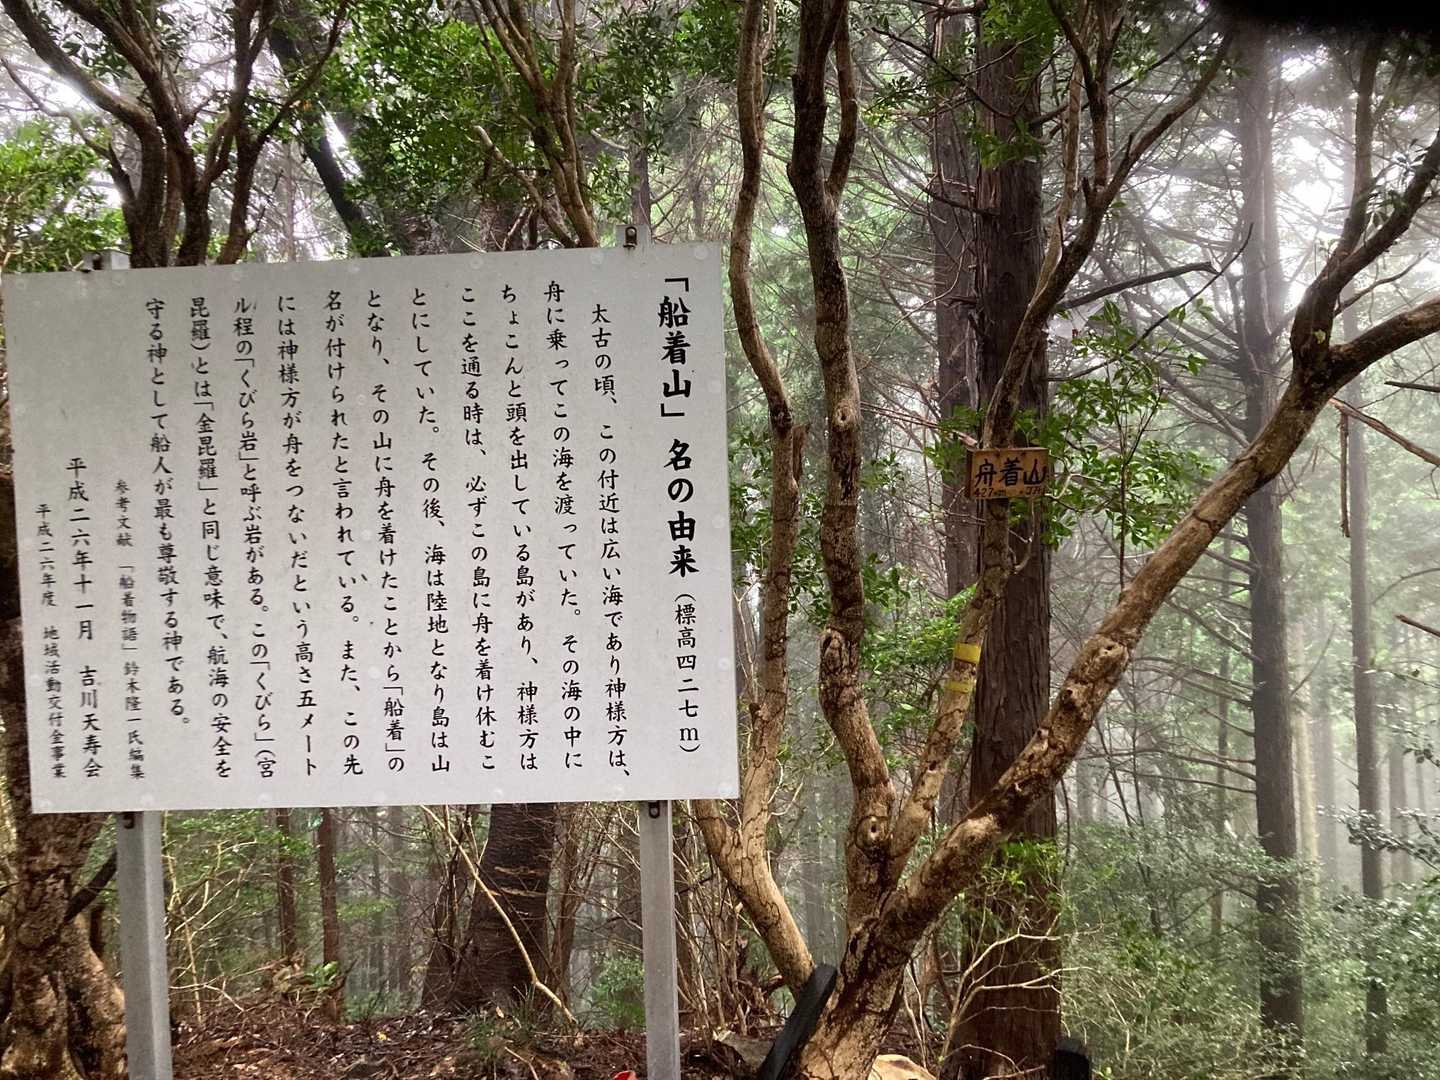 「船着山」名の由来（標高四二七ｍ）
太古の頃、この付近は広い海であり神様方は、
舟に乗ってこの海を渡っていた。その海の中に
ちょこんと頭を出している島があり、神様方は
ここを通る時は、必ずこの島に舟を着け休むこ
とにしていた。その後、海は陸地となり島は山
となり、その山に舟を着けたことから「船着」の
名が付けられたと言われている。また、この先
には神様方が舟をつないだという高さ五メート
ル程の「くびら岩」と呼ぶ岩がある。この「くびら」（宮
昆羅）とは「金昆羅」と同じ意味で、航海の安全を
守る神として船人が最も尊敬する神である。
参考文献　「船着物語」鈴木隆一氏編集
平成二六年十一月　吉川天寿会
平成二六年度　地域活動交付金事業
舟着山
427m